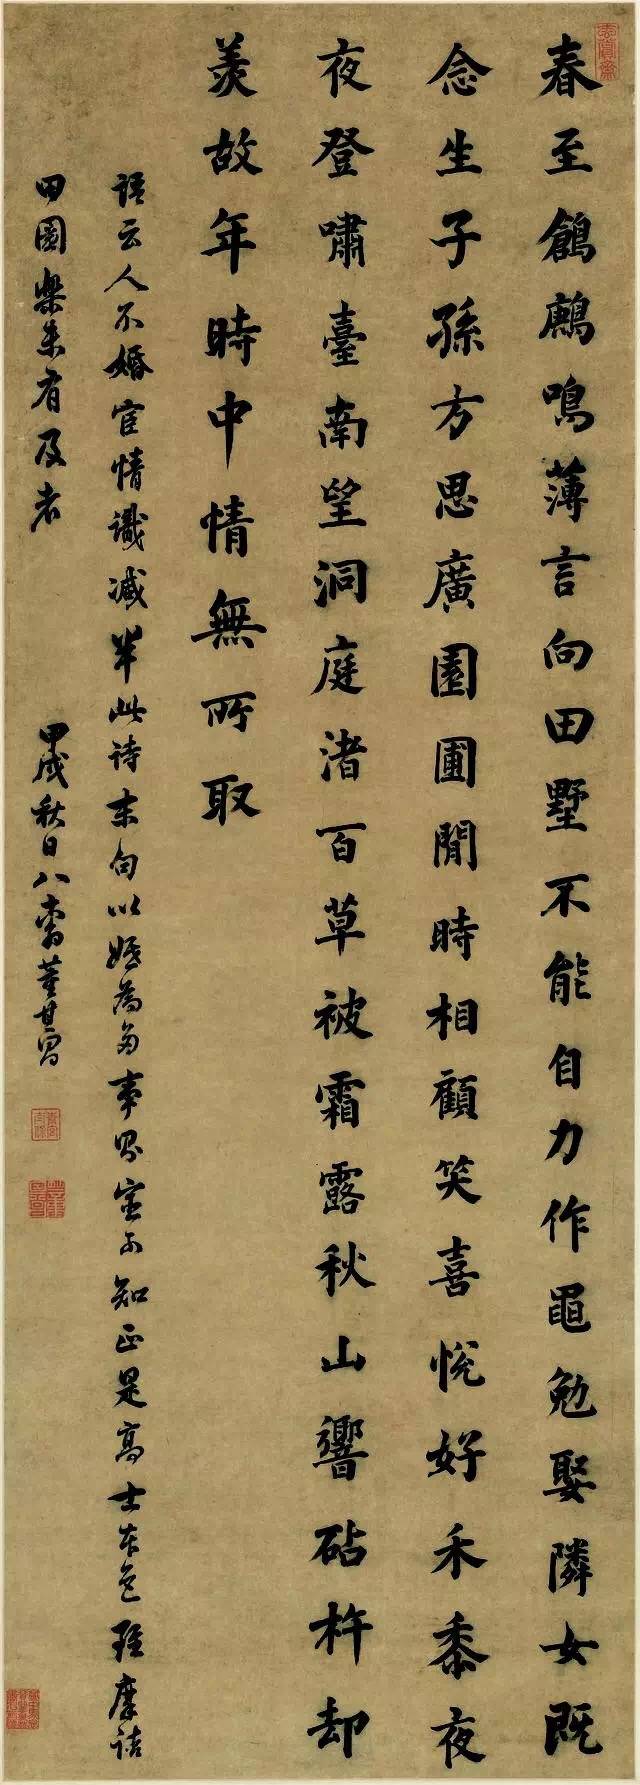 玄賞齋
春至鶬鶊鳴薄言向田墅不能自力作黽勉娶隣女既
念生子孫方思廣園圃閒時相顧笑喜悅好禾黍夜
夜登嘯臺南望洞庭渚百草被霜露秋山響砧杵却
羨故年時中情無所取
語云人不婚宦情識減半此詩末句以婚為多事寔不知正是高士本色雖摩詰
田園樂未有及者 甲戌秋日八董其昌
董其昌